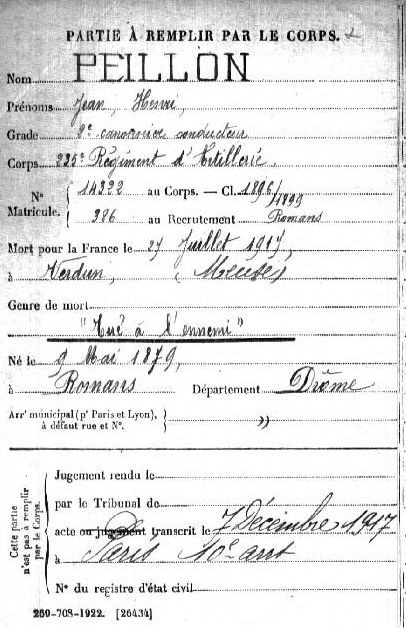 PARTIE À REMPLIR PAR LE CORPS.
Nom PEILLON
Prénoms Jean, Henri
Grade 2e canonnier conducteur
Corps 235e Régiment d'Artillerie.
N° Matricule. { 14332 au Corps. — Cl. 1896/1899
386 au Recrutement Romans
Mort pour la France le 27 Juillet 1917,
à Verdun, (Meuse)
Genre de mort
"Tué à l'ennemi"
Né le 9 Mai 1879,
à Romans Département Drôme
Arrt municipal (pr Paris et Lyon), à défaut rue et N°. { »
Cette partie n'est pas à remplir par le Corps.
Jugement rendu le
par le Tribunal de
acte ou jugement transcrit le 7 Décembre 1917
à Paris 10e arrt
N° du registre d'état civil
269-708-1922. [26434]